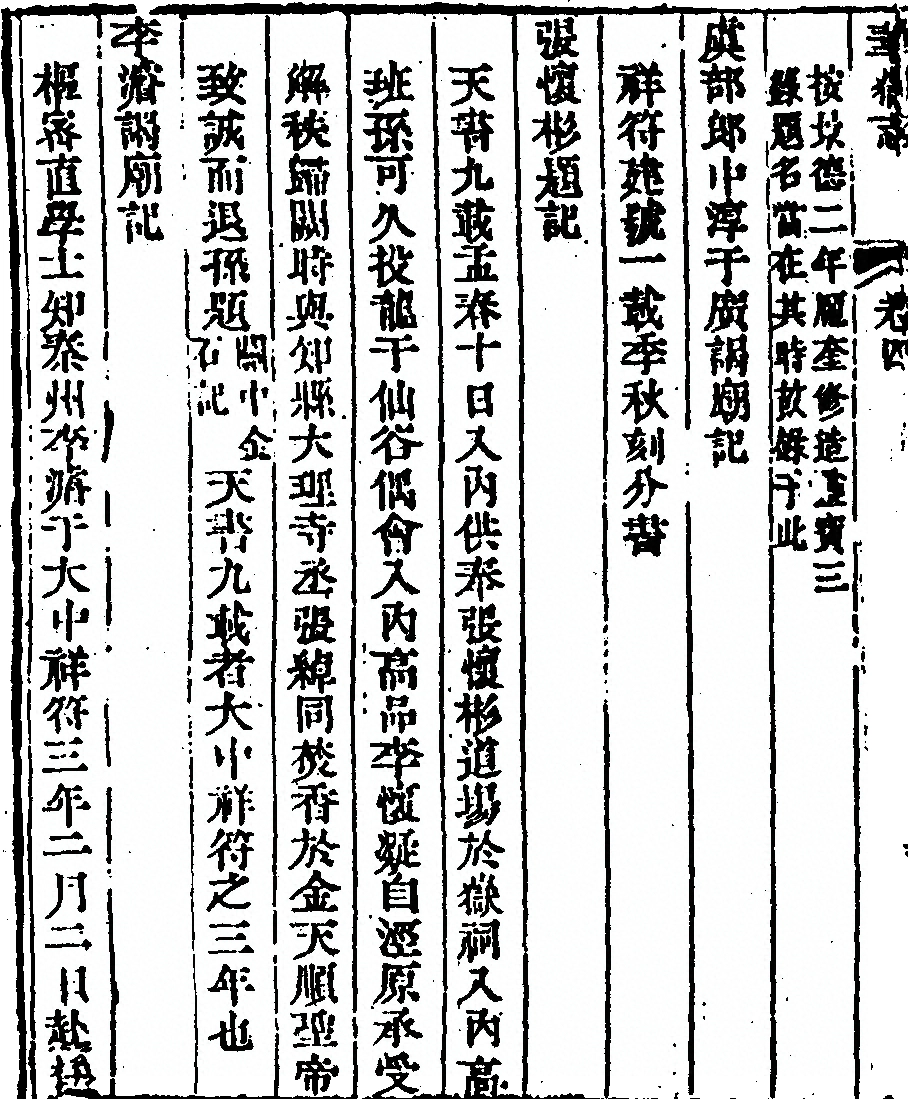 華嶽志　卷四
按坟德二年雁奎修造至寶三
錄題名當在其時故錄于此
虞部郎中淳于廣謁廟記
祥符建號一載季秋刻分書
張懷彬題記
天書九載孟春十日入內供奉張懷彬道場於嶽祠入內高
班孫可久投龍于仙谷偶會入內高品李懷凝自涇原承受
解秩歸闕時與知縣大理寺丞張綽同焚香於金天順聖帝
致誠而退孫題
關中金
石記
天書九載者大中祥符之三年也
李濬謁廟記
樞密直學士知秦州李濬于大中祥符三年二月二日赴